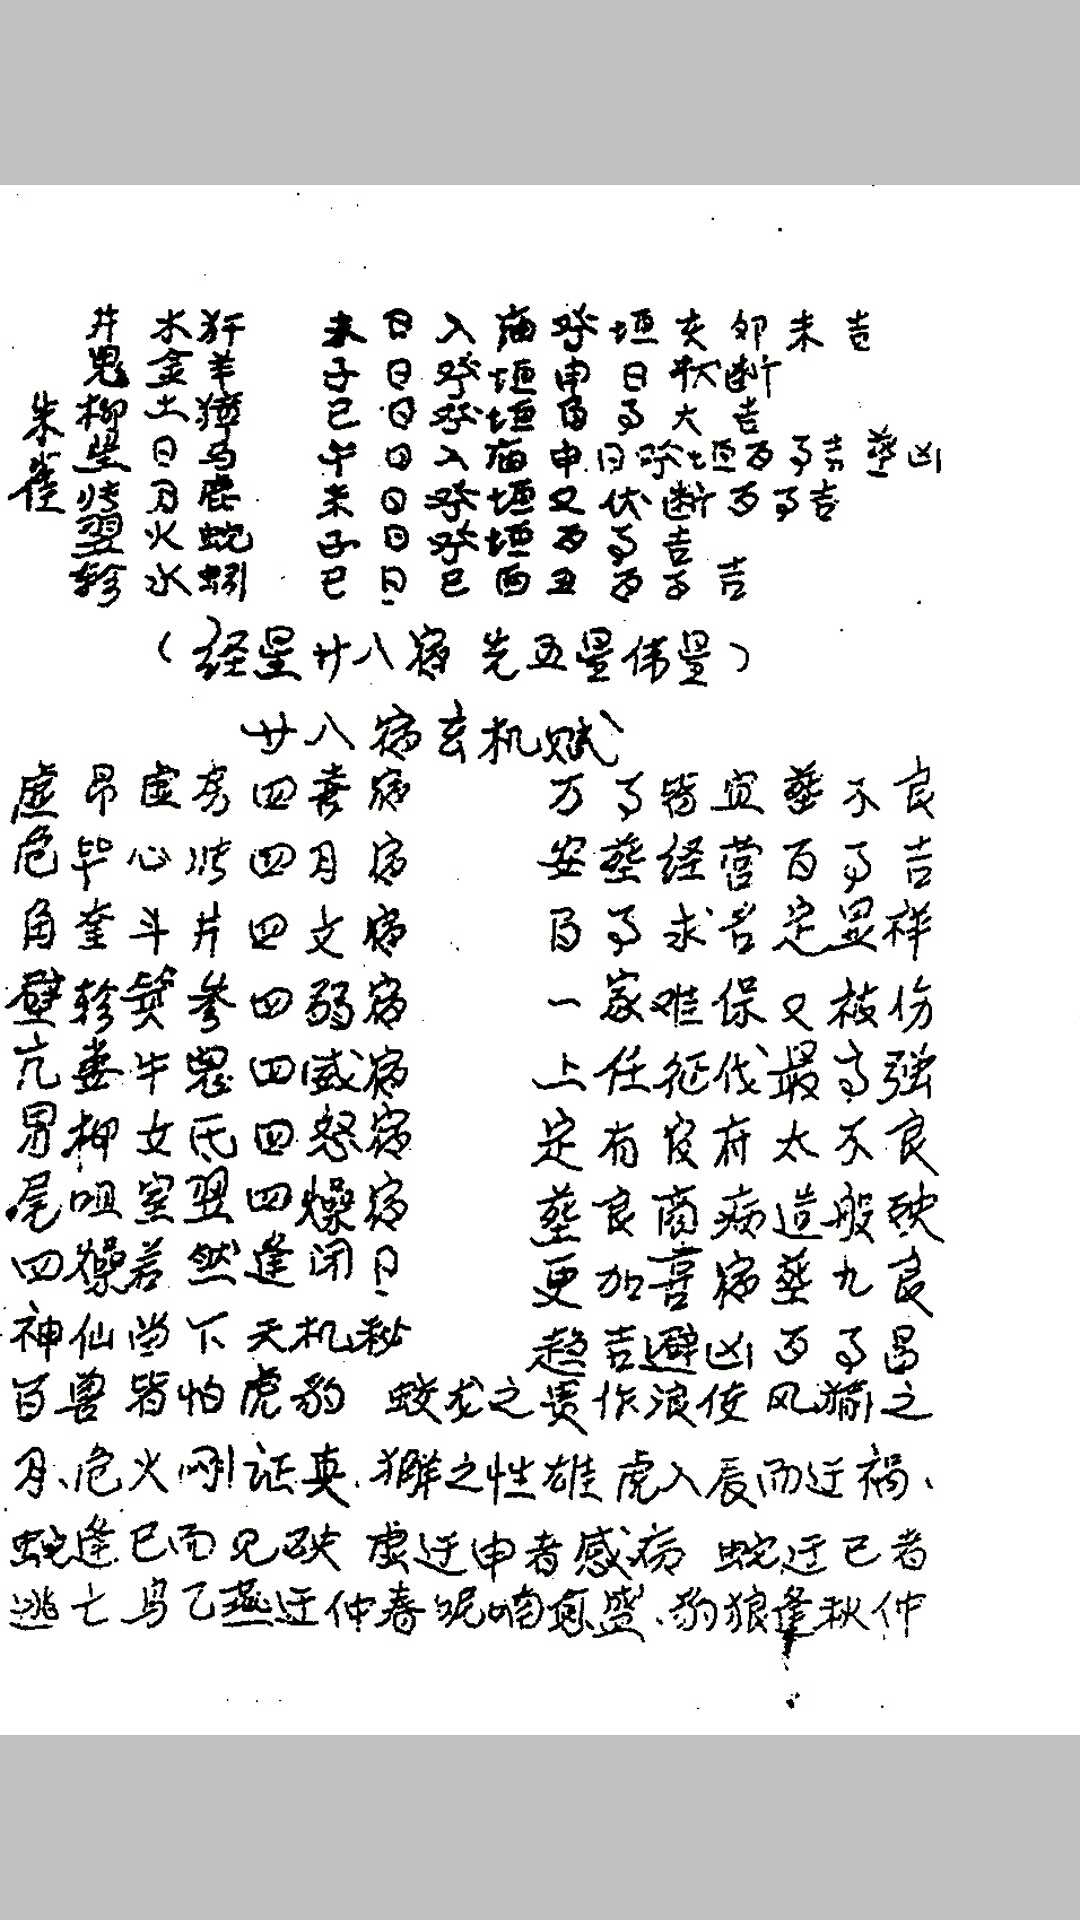 井木犴 未日入庙 垣亥卯未吉
鬼金羊 子日 垣申日伏断
朱雀
柳土獐 巳日 垣百事大吉
星日马 午日入庙申日 垣百事吉葬凶
张月鹿 未日 垣又伏断百事吉
翌火蛇 子日 垣百事吉
轸水蚓 巳日巳酉丑百事吉
(经星廿八宿 先五星伟星)
廿八宿玄机赋
虚昴虚房四喜宿 万事皆宜葬不良
危毕心张四月宿 安葬经营百事吉
角奎斗井四文宿 百事求名定显祥
壁轸箕参四弱宿 一家难保又被伤
亢娄牛鬼四威宿 上任征伐最高强
男柳女氐四怒宿 定有 府太不良
尾咀室翌四燥宿 葬良商病造般殃
四燥若然逢闭日 更加喜宿葬九良
神仙当下天机秘 趋吉避凶百事昌
百兽皆怕虎豹 蛟龙之贵作浪使风 之
月、危火刚证真、獬之性雄 虎入辰而迂祸、
蛇逢巳而见殃 虚迂申者感病 蛇迂己者
逃亡 鸟乙燕迂仲春呢喃愈盛、豹狼逢秋仲